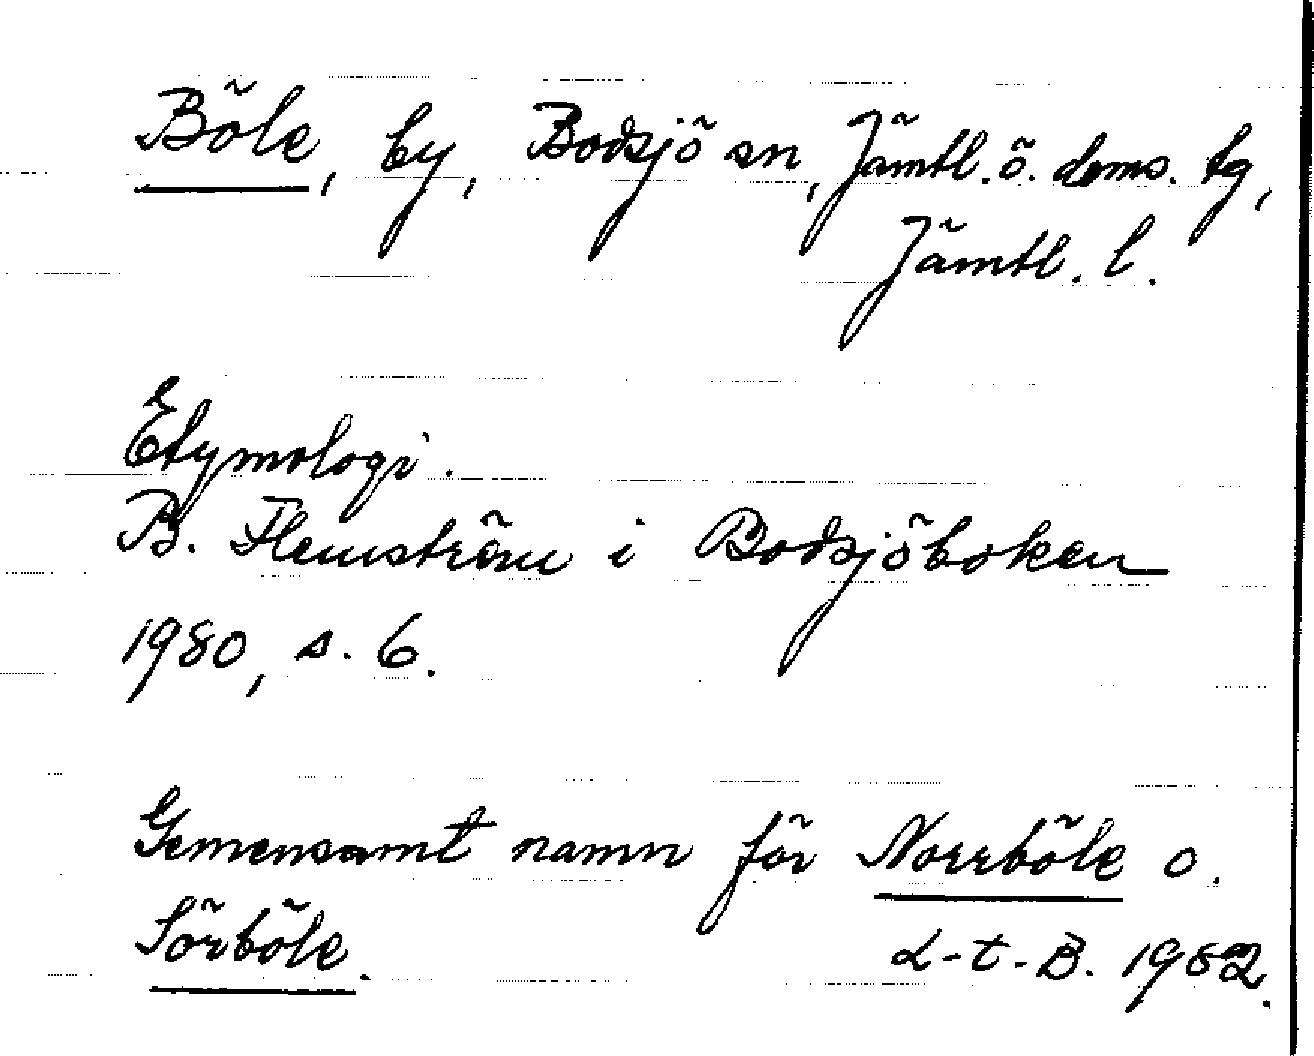 Böle, by, Bodsjö sn, Jämtl. ö. doms. tg,
Jämtl. l.
Etymologi.
B. Flemström i Bodsjöboken
1980, s. 6.
Gemensamt namn för Norrböle o.
Sörböle.
L-t-B. 1982.